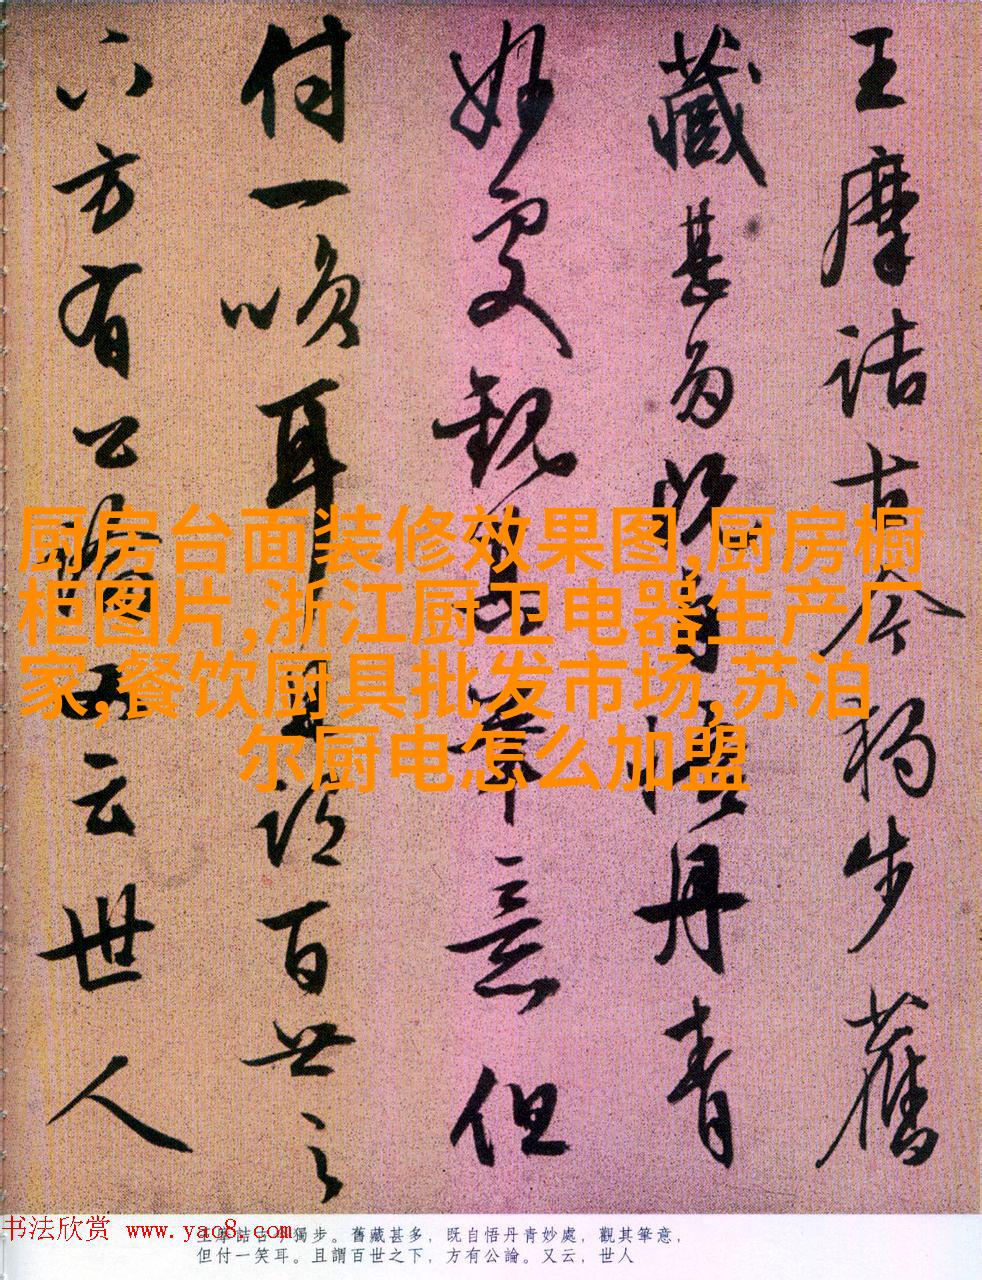 王摩詰古今獨步舊
藏甚多既自悟丹青
妙處觀其筆意但
付一咲耳且謂百世之
下方有公論又云世人
厨房台面装修效果图,厨房橱
柜图片,浙江厨卫电器生产厂
家,餐饮厨具批发市场,苏泊
尔厨电怎么加盟
书法欣赏 www.yac8.com
王摩詰古今獨步。舊藏甚多，既自悟丹青妙處，觀其筆意，
但付一笑耳。且謂百世之下，方有公論。又云，世人